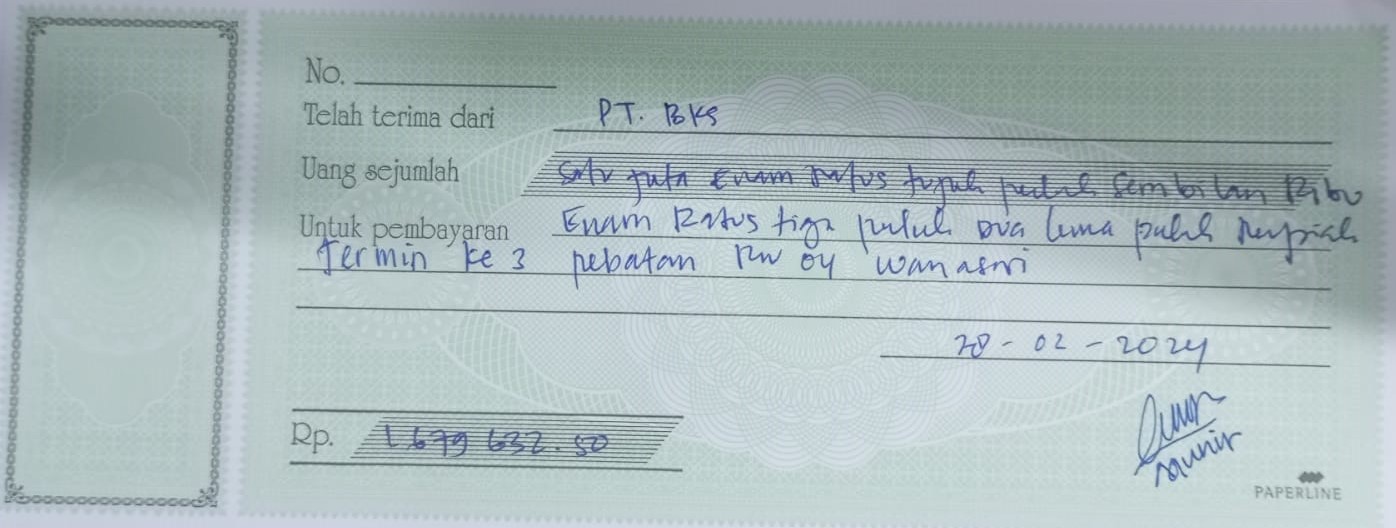 No.
Telah terima dari PT. BKS
Uang sejumlah Satu juta Enam Ratus tujuh puluh Sembilan Ribu
Untuk pembayaran Enam Ratus tiga puluh Dua lima puluh Rupiah
Termin ke 3 pebatan RW 04 Wanasari
28 - 02 - 2024
Rp. 1.679 632.50
Munir
PAPERLINE